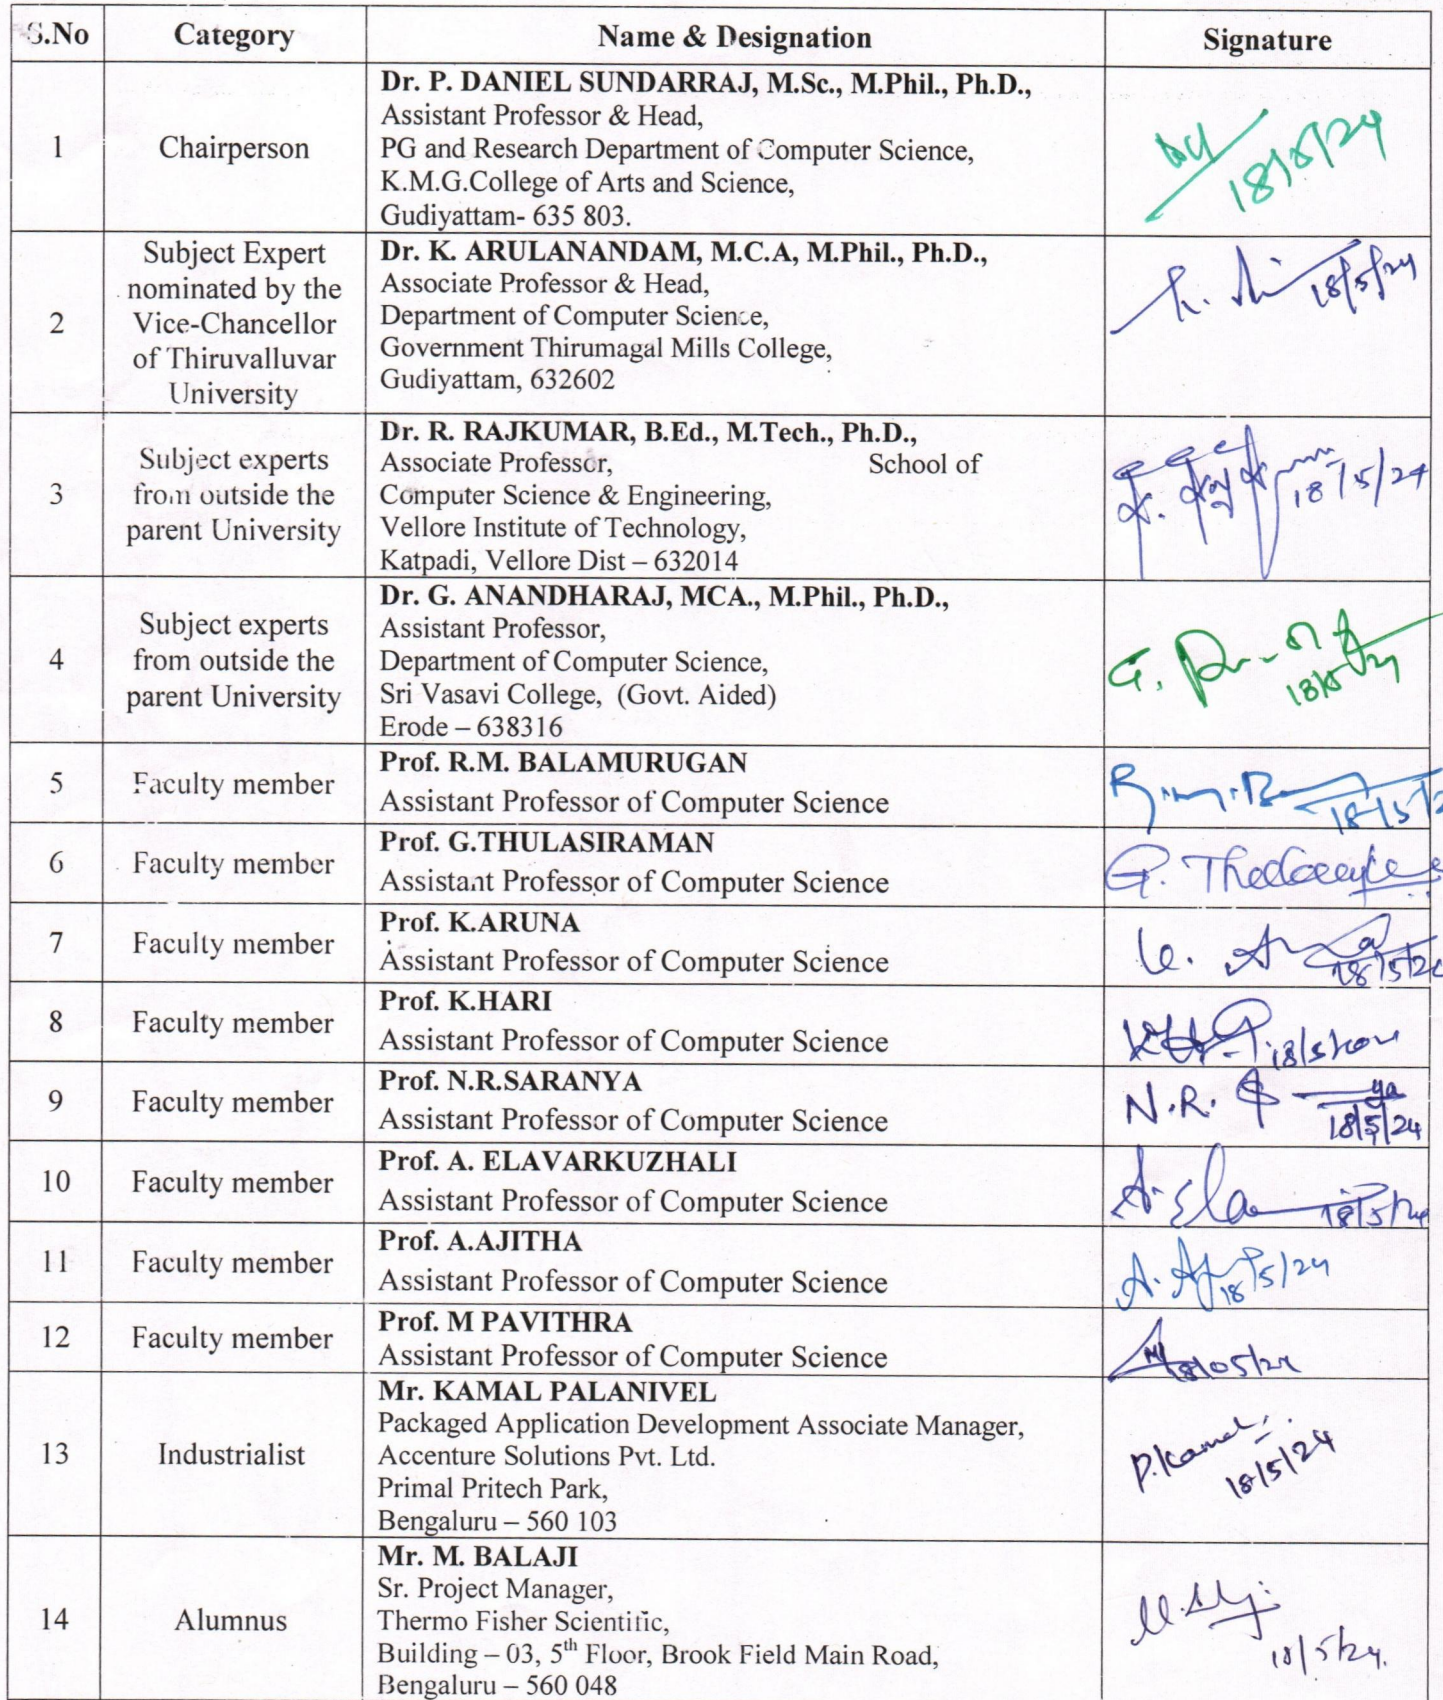 S.No Category Name & Designation Signature
1 Chairperson Dr. P. DANIEL SUNDARRAJ, M.Sc., M.Phil., Ph.D.,
Assistant Professor & Head,
PG and Research Department of Computer Science,
K.M.G.College of Arts and Science,
Gudiyattam- 635 803.
18/5/24
2 Subject Expert
nominated by the
Vice-Chancellor
of Thiruvalluvar
University
Dr. K. ARULANANDAM, M.C.A, M.Phil., Ph.D.,
Associate Professor & Head,
Department of Computer Science,
Government Thirumagal Mills College,
Gudiyattam, 632602
18/5/24
3 Subject experts
from outside the
parent University
Dr. R. RAJKUMAR, B.Ed., M.Tech., Ph.D.,
Associate Professor, School of
Computer Science & Engineering,
Vellore Institute of Technology,
Katpadi, Vellore Dist – 632014
18/5/24
4 Subject experts
from outside the
parent University
Dr. G. ANANDHARAJ, MCA., M.Phil., Ph.D.,
Assistant Professor,
Department of Computer Science,
Sri Vasavi College, (Govt. Aided)
Erode – 638316
G.
5 Faculty member Prof. R.M. BALAMURUGAN
Assistant Professor of Computer Science
18/5/2
6 Faculty member Prof. G.THULASIRAMAN
Assistant Professor of Computer Science
G.
7 Faculty member Prof. K.ARUNA
Assistant Professor of Computer Science
18/5/24
8 Faculty member Prof. K.HARI
Assistant Professor of Computer Science
9 Faculty member Prof. N.R.SARANYA
Assistant Professor of Computer Science
N.R. S ya
18/5/24
10 Faculty member Prof. A. ELAVARKUZHALI
Assistant Professor of Computer Science
A. Ela
18/5/24
11 Faculty member Prof. A.AJITHA
Assistant Professor of Computer Science
A. Aj 18/5/24
12 Faculty member Prof. M PAVITHRA
Assistant Professor of Computer Science
18/05/24
13 Industrialist Mr. KAMAL PALANIVEL
Packaged Application Development Associate Manager,
Accenture Solutions Pvt. Ltd.
Primal Pritech Park,
Bengaluru – 560 103
P.Kamal
18/5/24
14 Alumnus Mr. M. BALAJI
Sr. Project Manager,
Thermo Fisher Scientific,
Building – 03, 5th Floor, Brook Field Main Road,
Bengaluru – 560 048
18/5/24.